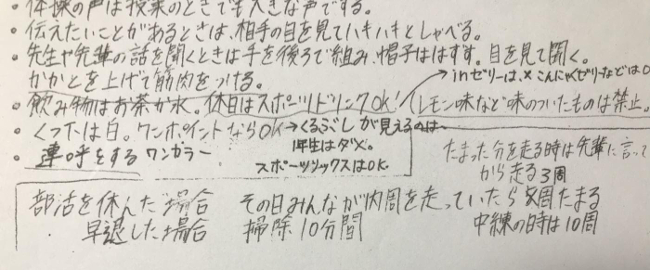 ・体操の声は授業のときでも大きな声でする。
・伝えたいことがあるときは、相手の目を見てハキハキとしゃべる。
・先生や先輩の話を聞くときは手を後ろで組み、帽子ははずす。目を見て聞く。
かかとを上げて筋肉をつける。
→inゼリーは、× こんにゃくゼリーなどは○
・飲み物はお茶か水。休日はスポーツドリンクOK!(レモン味など味のついたものは禁止。
・くつ下は白。ワンポイントならOK→くるぶしが見えるのは
1年生はダメ。
・連呼をする ワンカラー
スポーツソックスはOK.
たまった分を走る時は先輩に言って
から走る3周
部活を休んだ場合 その日みんなが内周を走っていたら 周たまる
早退した場合 掃除10分間
中練の時は10周